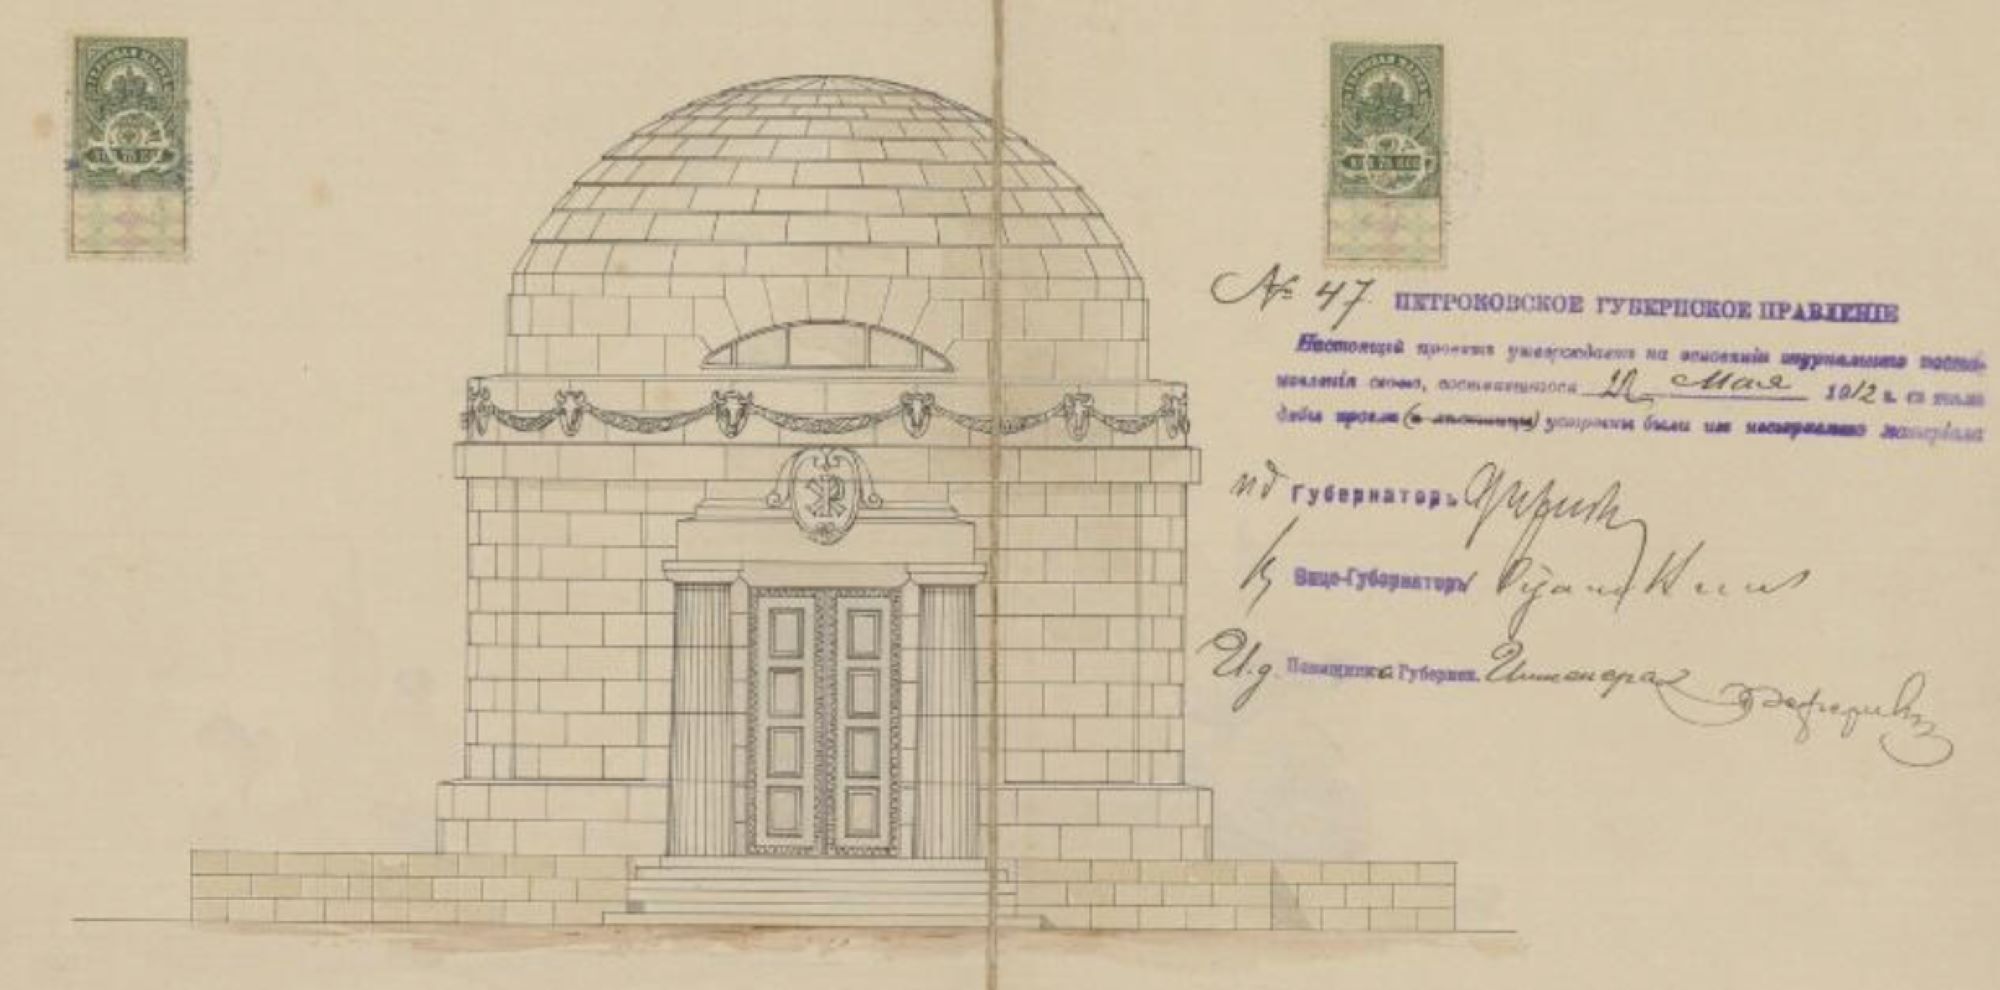 ГЕРБОВАЯ МАРКА
75 КОП
ГЕРБОВАЯ МАРКА
75 КОП
№ 47. ПЕТРОКОВСКОЕ ГУБЕРНСКОЕ ПРАВЛЕНІЕ
Настоящій проектъ утверждаетъ на основаніи журнальнаго поста-
новленія своего, состоявшагося 22 Мая 1912 г. съ тѣмъ
дабы кровля (и лѣстницы) устроены были изъ несгораемаго матеріала
ид Губернаторъ
Вице-Губернаторъ
И.д. Помощника Губернск. Инженера